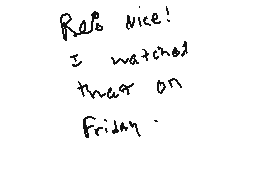 Re: Nice!
I watched
that on
Friday.